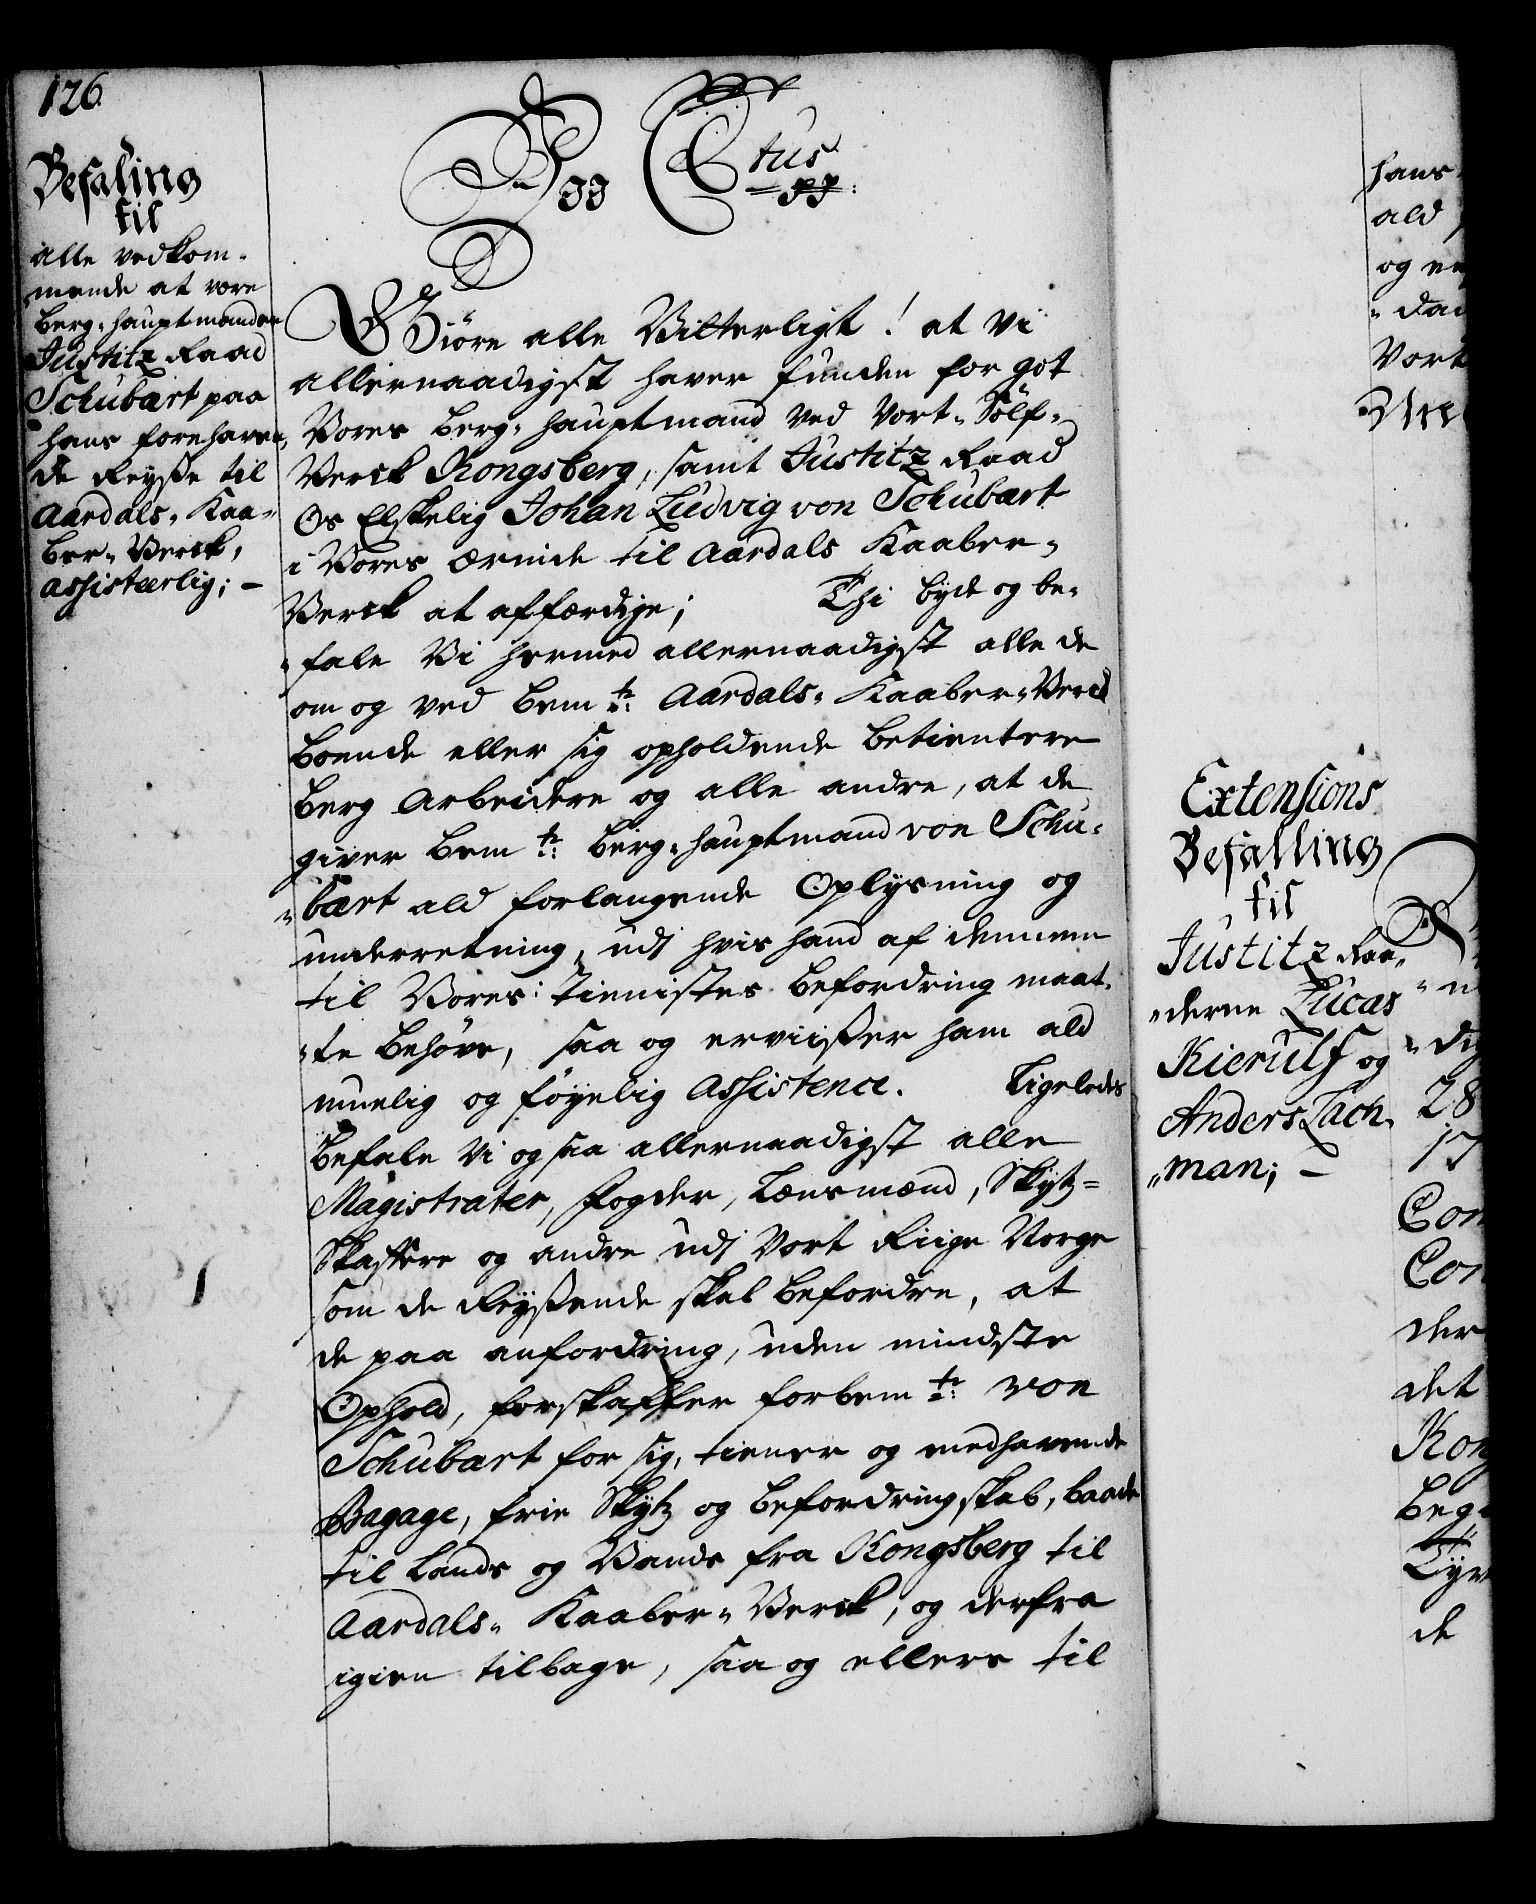 126.
Befaling
til
alle vedkom-
mende at være
Berg-hauptmanden
Justitz Raad
Schubart paa
hans forehaven-
de Reyße til
Aardals-Kaa-
ber-Verck,
assisteerlig; –
Ctus
pp:
Giöre alle Vitterligt! at Vi
allernaadigst haver funden for got
Vores Berg-hauptmand ved Vort-Sölf-
Verck Kongsberg, samt Justitz Raad
Os Elskelig Johan Ludvig von Schubart
i Vores ærinde til Aardals Kaaber-
Verck at affærdige; Thi byde og be-
-fale Vi hermed allernaadigst alle de
om og ved bemte: Aardals-Kaaber-Verck
boende eller sig opholdende Betientere
Berg Arbeidere og alle andre, at de
giver bemte: Berg-hauptmand von Schu-
-bart ald forlangende Oplysning og
underretning, udj hvis hand af dennem
til Vores: tienistes befordring maat-
-te behøve, saa og erviißer ham ald
muelig og føyelig Assistence. Ligeledes
befale Vi og saa allernaadigst alle
Magistrater, Fogder, Lænsmænd, Skytz-
Skaffere og andre udj Vort Riige Norge
som de Reyßende skal befordre, at
de paa anfordring, uden mindste
Ophold, forskaffer forbemte: von
Schubart for sig, tiener og medhavende
Bagage, frie Skytz og befordringskab, baade
til Lands og Vands fra Kongsberg til
Aardals-Kaaber-Verck, og derfra
igien tilbage, saa og ellers til
hans
ald
og
Vort
Extensions
Befalling
til
Justitz Raa-
-derne Lucas
Kierulf og
Anders Lach-
-man; –
28
17
Con
Con
der
det
Kon
beg
de